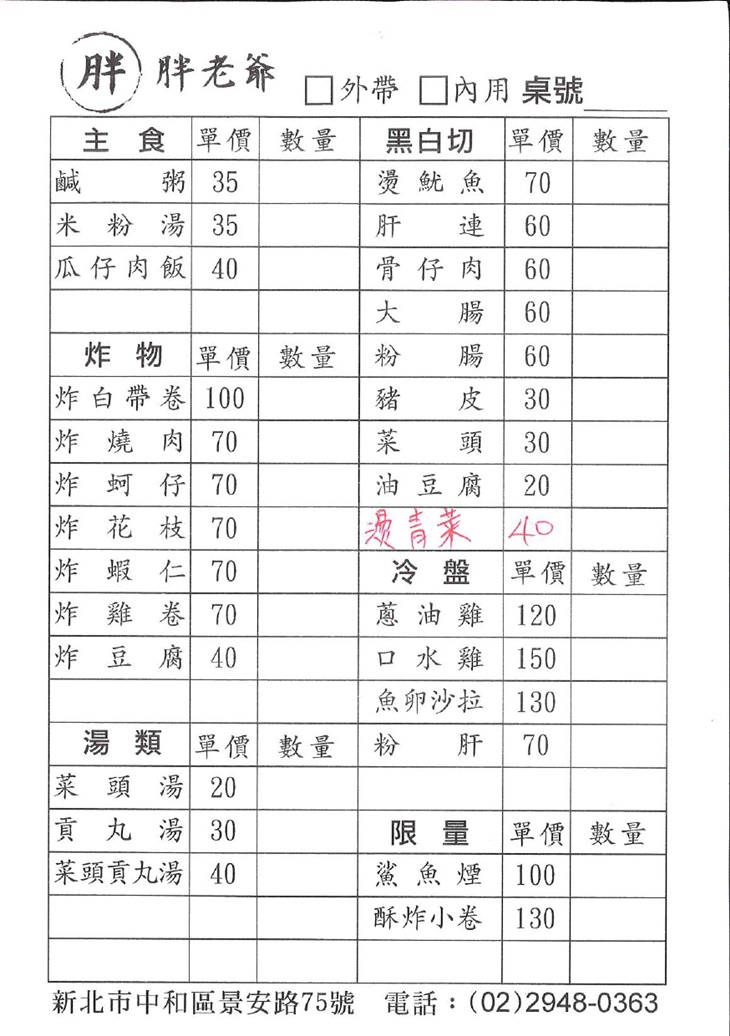 胖 胖老爺 □外帶 □內用 桌號______
主食 單價 數量
鹹粥 35
米粉湯 35
瓜仔肉飯 40
炸物 單價 數量
炸白帶卷 100
炸燒肉 70
炸蚵仔 70
炸花枝 70
炸蝦仁 70
炸雞卷 70
炸豆腐 40
湯類 單價 數量
菜頭湯 20
貢丸湯 30
菜頭貢丸湯 40
黑白切 單價 數量
燙魷魚 70
肝連 60
骨仔肉 60
大腸 60
粉腸 60
豬皮 30
菜頭 30
油豆腐 20
燙青菜 40
冷盤 單價 數量
蔥油雞 120
口水雞 150
魚卵沙拉 130
粉肝 70
限量 單價 數量
鯊魚煙 100
酥炸小卷 130
新北市中和區景安路75號 電話：(02)2948-0363